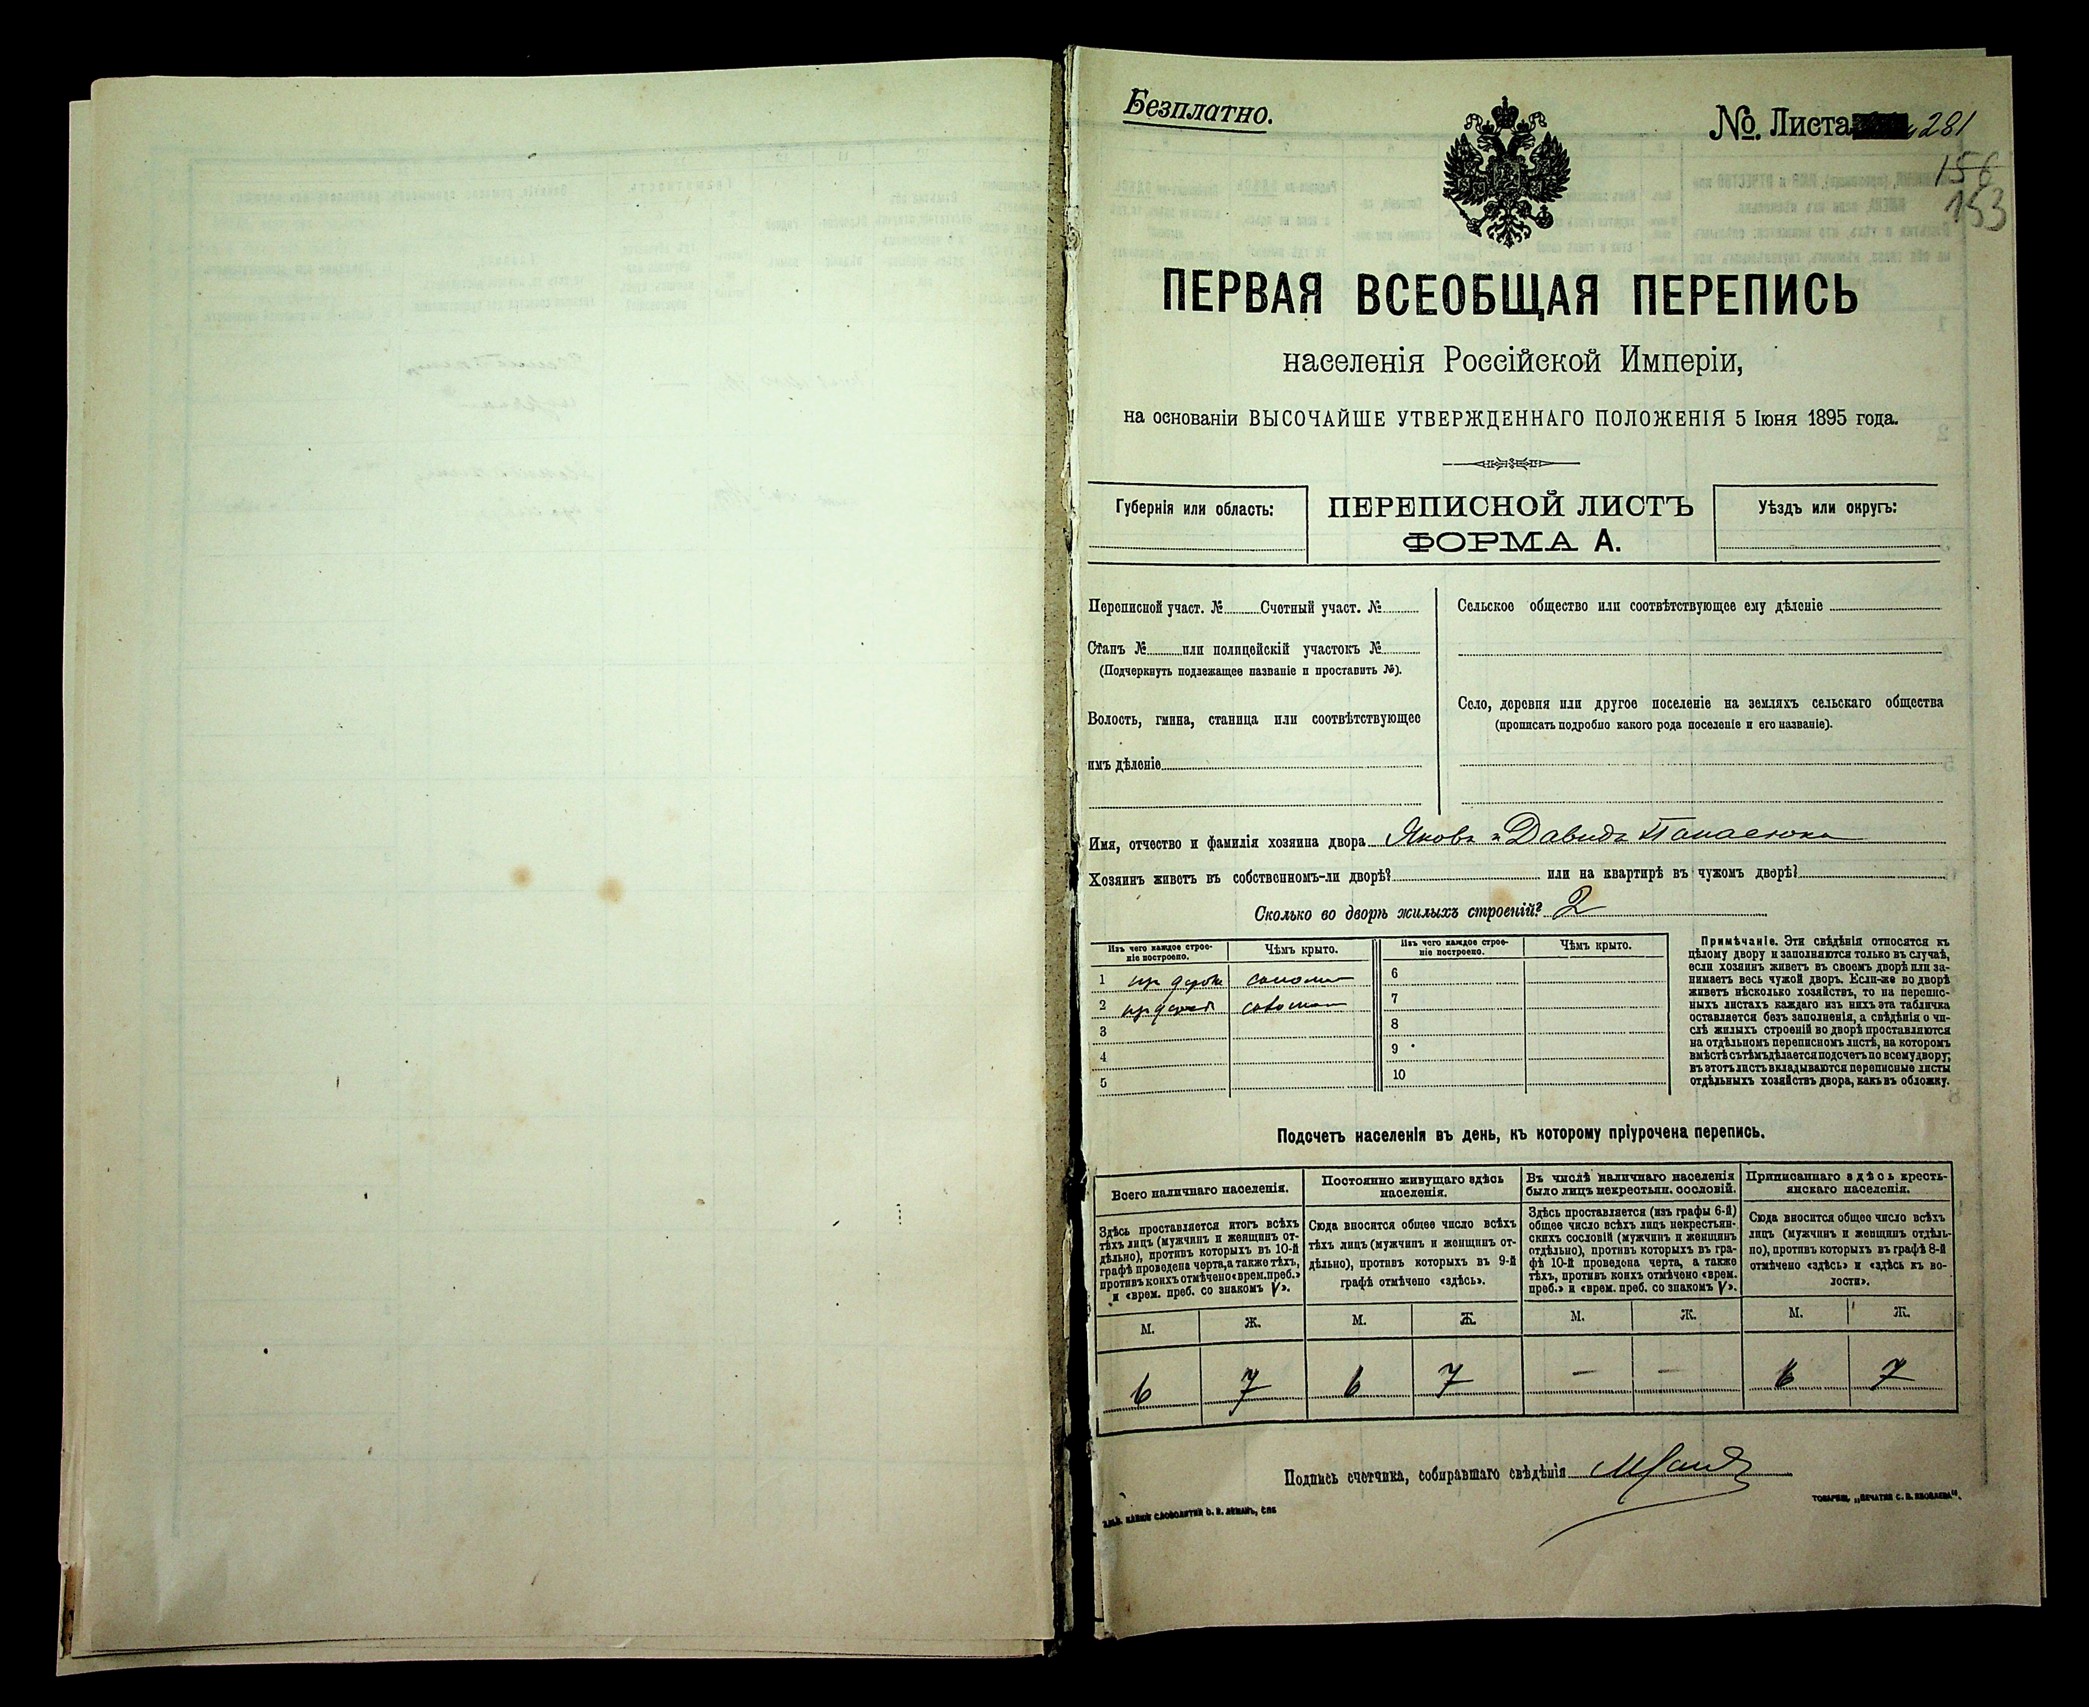 Безплатно.
№. Листа 281
156
153
ПЕРВАЯ ВСЕОБЩАЯ ПЕРЕПИСЬ
населенія Россійской Имперіи,
на основаніи ВЫСОЧАЙШЕ УТВЕРЖДЕННАГО ПОЛОЖЕНІЯ 5 Іюня 1895 года.
Губернія или область:
ПЕРЕПИСНОЙ ЛИСТЪ
ФОРМА А.
Уѣздъ или округъ:
Переписной участ. № Счетный участ. №
Станъ № или полицейскій участокъ №
(Подчеркнуть подлежащее названіе и проставить №).
Волость, гмина, станица или соотвѣтствующее
имъ дѣленіе
Сельское общество или соотвѣтствующее ему дѣленіе
Село, деревня или другое поселеніе на земляхъ сельскаго общества
(прописать подробно какого рода поселеніе и его названіе).
Имя, отчество и фамилія хозяина двора Яковъ и Давидъ Панасюки
Хозяинъ живетъ въ собственномъ-ли дворѣ? или на квартирѣ въ чужомъ дворѣ?
Сколько во дворѣ жилыхъ строеній? 2
Изъ чего каждое строе-
ніе построено.
Чѣмъ крыто.
1 солома
2 солома
3
4
5
Изъ чего каждое строе-
ніе построено.
Чѣмъ крыто.
6
7
8
9
10
Примѣчаніе. Эти свѣдѣнія относятся къ
цѣлому двору и заполняются только въ случаѣ,
если хозяинъ живетъ въ своемъ дворѣ или за-
нимаетъ весь чужой дворъ. Если-же во дворѣ
живетъ нѣсколько хозяйствъ, то на перепис-
ныхъ листахъ каждаго изъ нихъ эта табличка
оставляется безъ заполненія, а свѣдѣнія о чи-
слѣ жилыхъ строеній во дворѣ проставляются
на отдѣльномъ переписномъ листѣ, на которомъ
вмѣстѣ съ тѣмъ дѣлается подсчетъ по всему двору;
въ этотъ листъ вкладываются переписные листы
отдѣльныхъ хозяйствъ двора, какъ въ обложку.
Подсчетъ населенія въ день, къ которому пріурочена перепись.
Всего наличнаго населенія.
Здѣсь проставляется итогъ всѣхъ
тѣхъ лицъ (мужчинъ и женщинъ от-
дѣльно), противъ которыхъ въ 10-й
графѣ проведена черта, а также тѣхъ,
противъ коихъ отмѣчено «врем. преб.»
и «врем. преб. со знакомъ V».
М. Ж.
6 7
Постоянно живущаго здѣсь
населенія.
Сюда вносится общее число всѣхъ
тѣхъ лицъ (мужчинъ и женщинъ от-
дѣльно), противъ которыхъ въ 9-й
графѣ отмѣчено «здѣсь».
М. Ж.
6 7
Въ числѣ наличнаго населенія
было лицъ некрестьян. сословій.
Здѣсь проставляется (изъ графы 6-й)
общее число всѣхъ лицъ некрестьян-
скихъ сословій (мужчинъ и женщинъ
отдѣльно), противъ которыхъ въ гра-
фѣ 10-й проведена черта, а также
тѣхъ, противъ коихъ отмѣчено «врем.
преб.» и «врем. преб. со знакомъ V».
М. Ж.
— —
Приписаннаго здѣсь кресть-
янскаго населенія.
Сюда вносится общее число всѣхъ
лицъ (мужчинъ и женщинъ отдѣль-
но), противъ которыхъ въ графѣ 8-й
отмѣчено «здѣсь» и «здѣсь къ во-
лости».
М. Ж.
6 7
Подпись счетчика, собиравшаго свѣдѣнія
СЛОВОЛИТНИ О. И. ЛЕМАНЪ, СПБ
ТОВАРИЩ. „ПЕЧАТНЯ С. П. ЯКОВЛЕВА“.